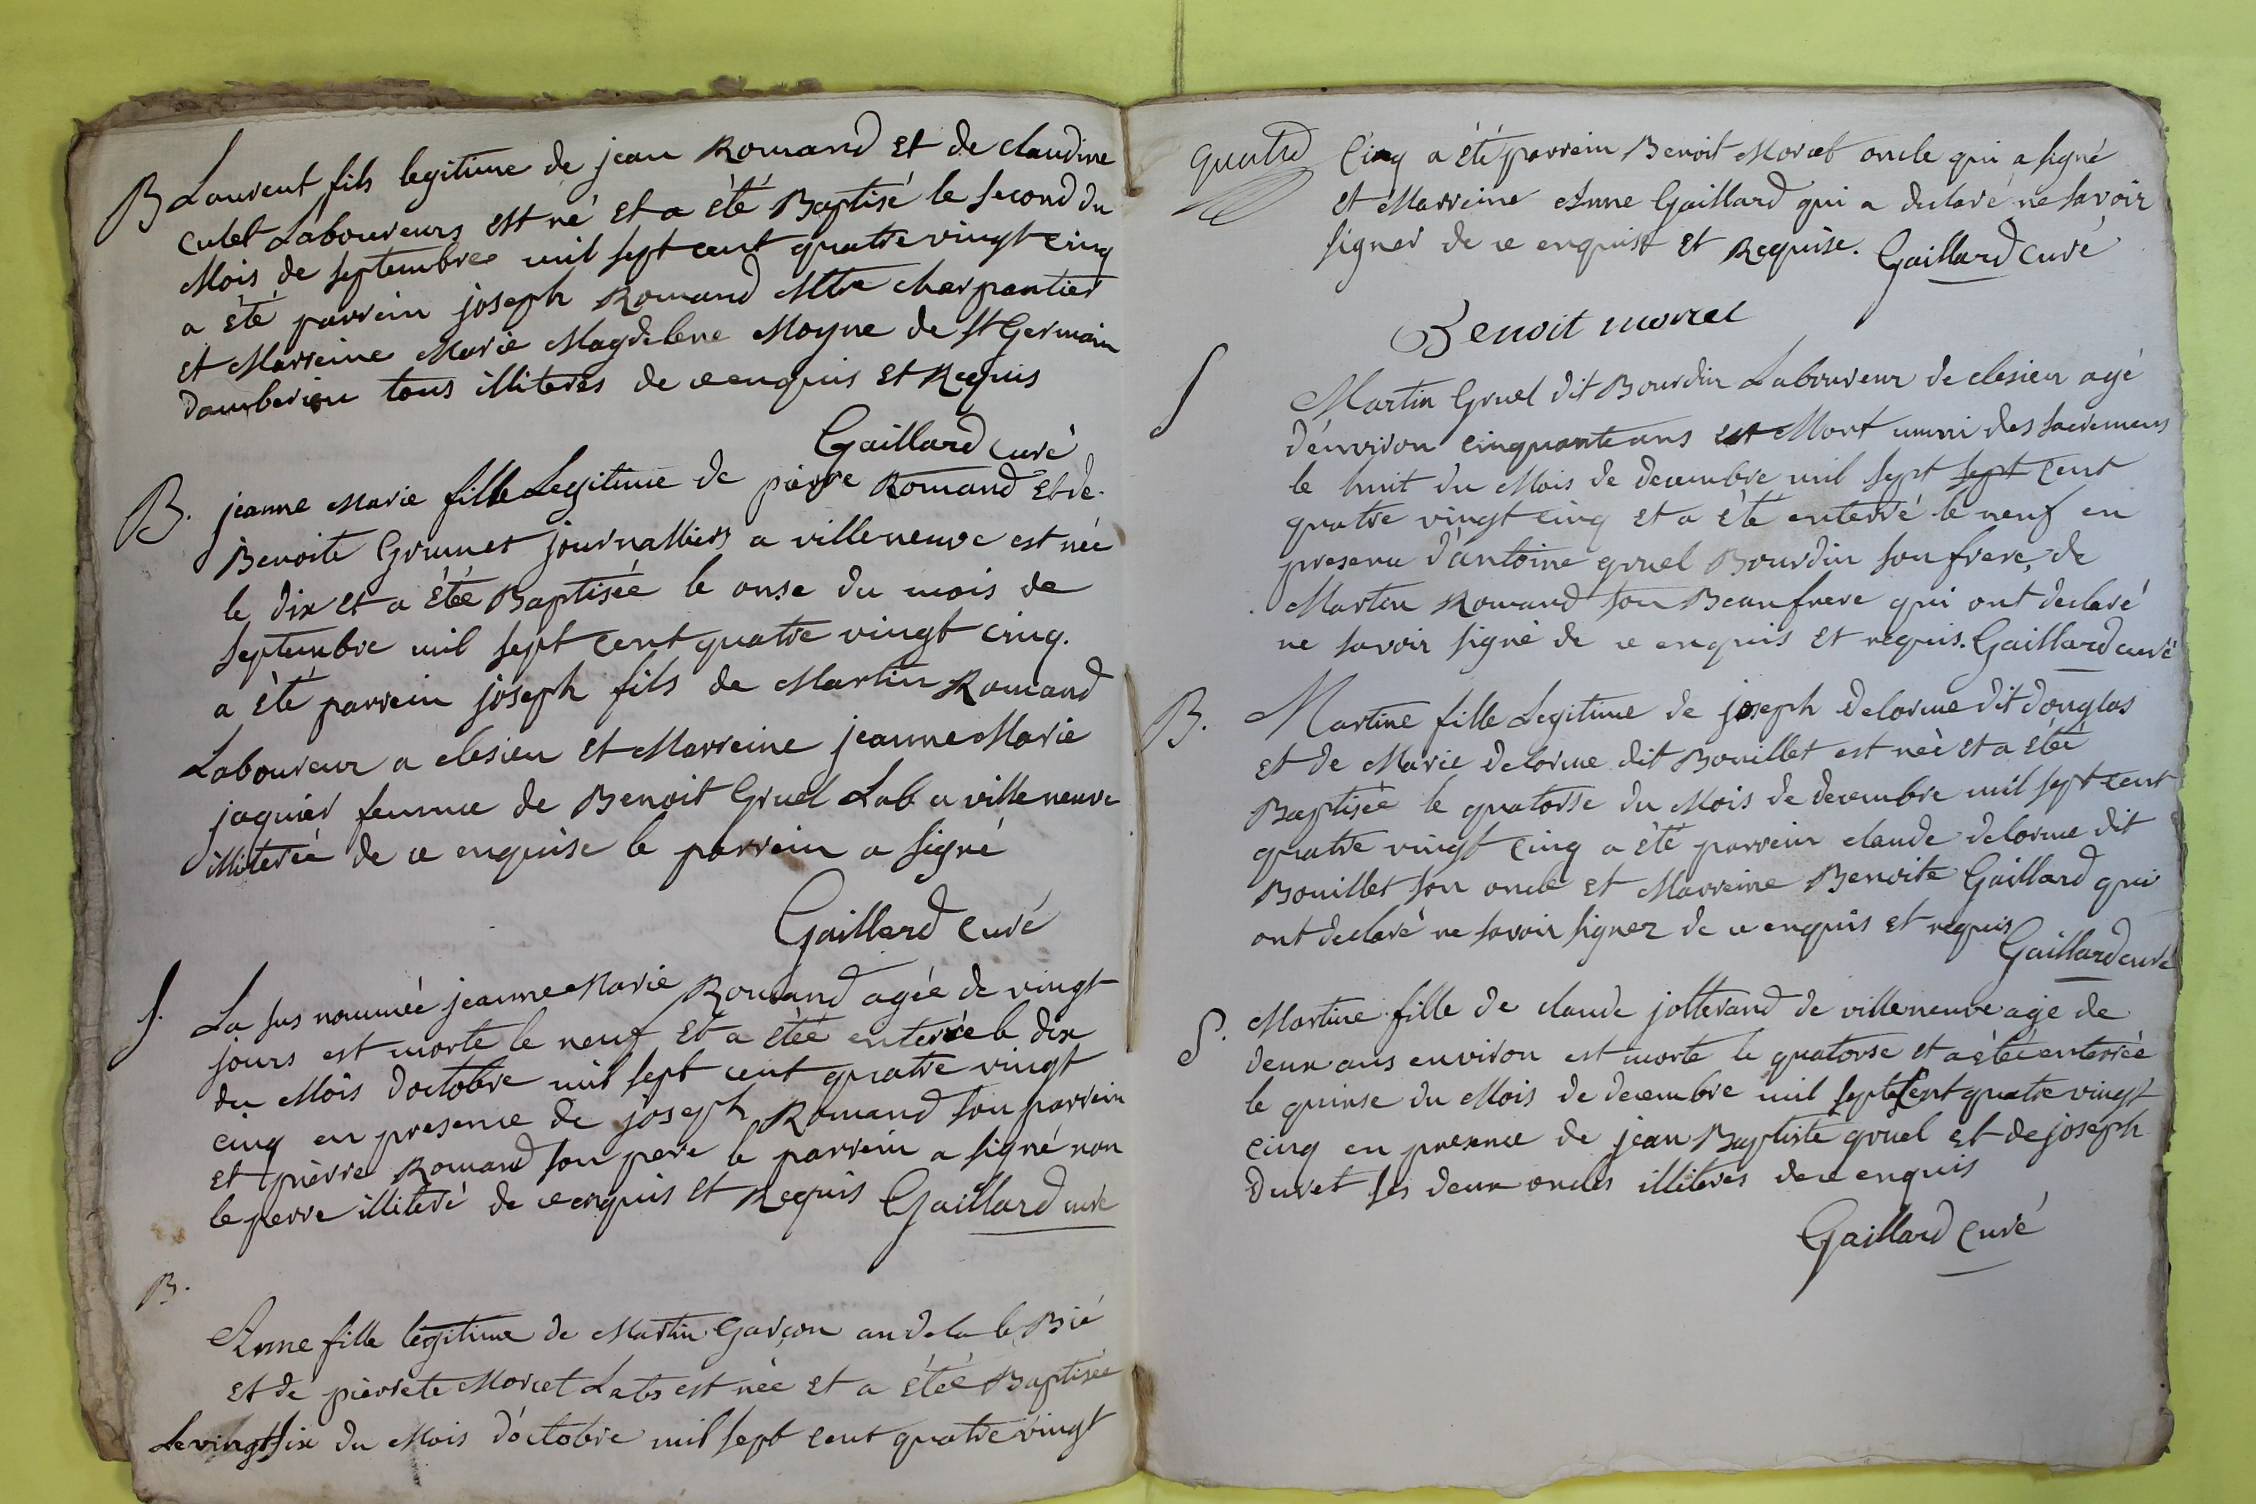 B Laurent fils legitime de jean Romand et de claudine
culet Laboureurs est né et a été Baptisé le second du
Mois de septembre mil sept cent quatre vingt cinq
a été parrein joseph Romand Mtre charpantier
et Marreine Marie Magdelene Moyne de st Germain
damberieu tous illiterés de ce enquis et Requis
Gaillard curé
B. jeanne Marie fille Legitime de pierre Romand et de
Benoite Grumet journalliers a villeneuve est née
le dix et a étée Baptisée le onse du mois de
septembre mil sept cent quatre vingt cinq.
a été parrein joseph fils de Martin Romand
Laboureur a clesieu et Marreine jeanne Marie
jaquier femme de Benoit Gruel Lab a villeneuve
illiterée de ce enquise le parrein a signé
Gaillard curé
S. La sus nommée jeanne Marie Romand agée de vingt
jours est morte le neuf et a étée enterée le dix
du Mois doctobre mil sept cent quatre vingt
cinq en presence de joseph Romand son parrein
et pierre Romand son pere le parrein a signé non
le perre illiteré de ce enquis et Requis Gaillard curé
B.
Anne fille legitime de Martin Garçon au dela le Bié
et de pierrete Morcel Labs est née et a étée Baptisée
Le vingt six du Mois d'octobre mil sept cent quatre vingt
quatre
Cinq a été parrein Benoit Morcel oncle qui a signé
et Marreine Anne Gaillard qui a declaré ne savoir
signer de ce enquise et Requise. Gaillard curé
Benoit morcel
S
Martin Gruel dit Bourdin Laboureur de clesieu agé
d'environ cinquante ans est Mort muni des sacremens
le huit du Mois de decembre mil sept sept cent
quatre vingt cinq et a été enterré le neuf en
presence d'antoine gruel Bourdin son frere, de
Martin Romand son Beaufrere qui ont declaré
ne savoir signé de ce enquis et requis. Gaillard curé
B. Martine fille Legitime de joseph delorme dit douglas
et de Marie delorme dit Bouillet est née et a étée
Baptisée le quatorse du Mois de decembre mil sept cent
quatre vingt cinq a été parrein claude delorme dit
Bouillet son oncle et Marreine Benoite Gaillard qui
ont declaré ne savoir signer de ce enquis et requis
Gaillard curé
S. Martine fille de claude jolterand de villeneuve age de
deux ans environ est morte le quatorse et a étée enterrée
le quinse du Mois de decembre mil sept cent quatre vingt
cinq en presence de jean Baptiste gruel et de joseph
duret ses deux oncles illiterés de ce enquis
Gaillard curé